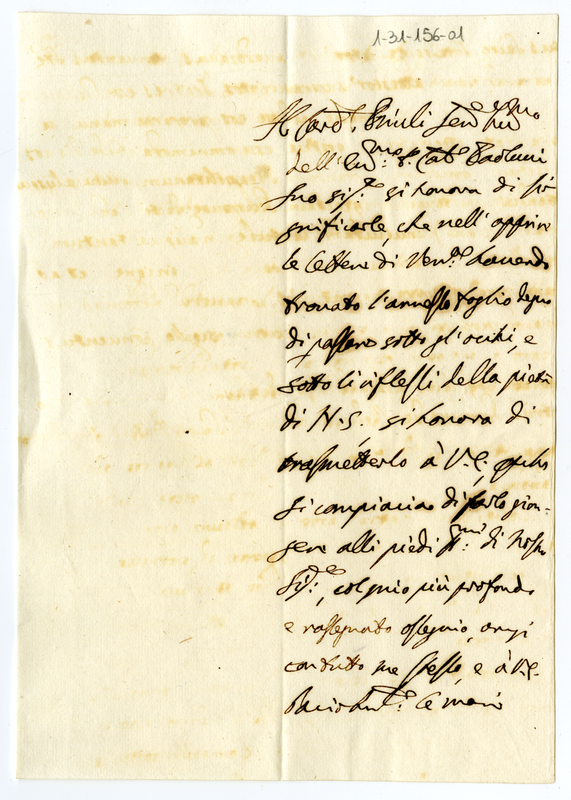 1-31-156-01
Il Card. Priuli Ser.re Hu.mo
dell'Em.mo S. Card. Paolucci
suo Sig.re si honora di si-
gnificarle, che nell'aprire
le lettere di Ven.a havendo
trovato l'annesso foglio degno
di passare sotto gli occhi, e
sotto li riflessi della pietà
di N. S., si honora di
trasmetterlo à V. E., acciò
si compiaccia di farlo gion-
gere alli piedi SS.mi di Nostro
Sig.re, col mio più profondo
e rassegnato ossequio, anzi
con tutto me stesso, e à V. E.
bacio hum.e le mani